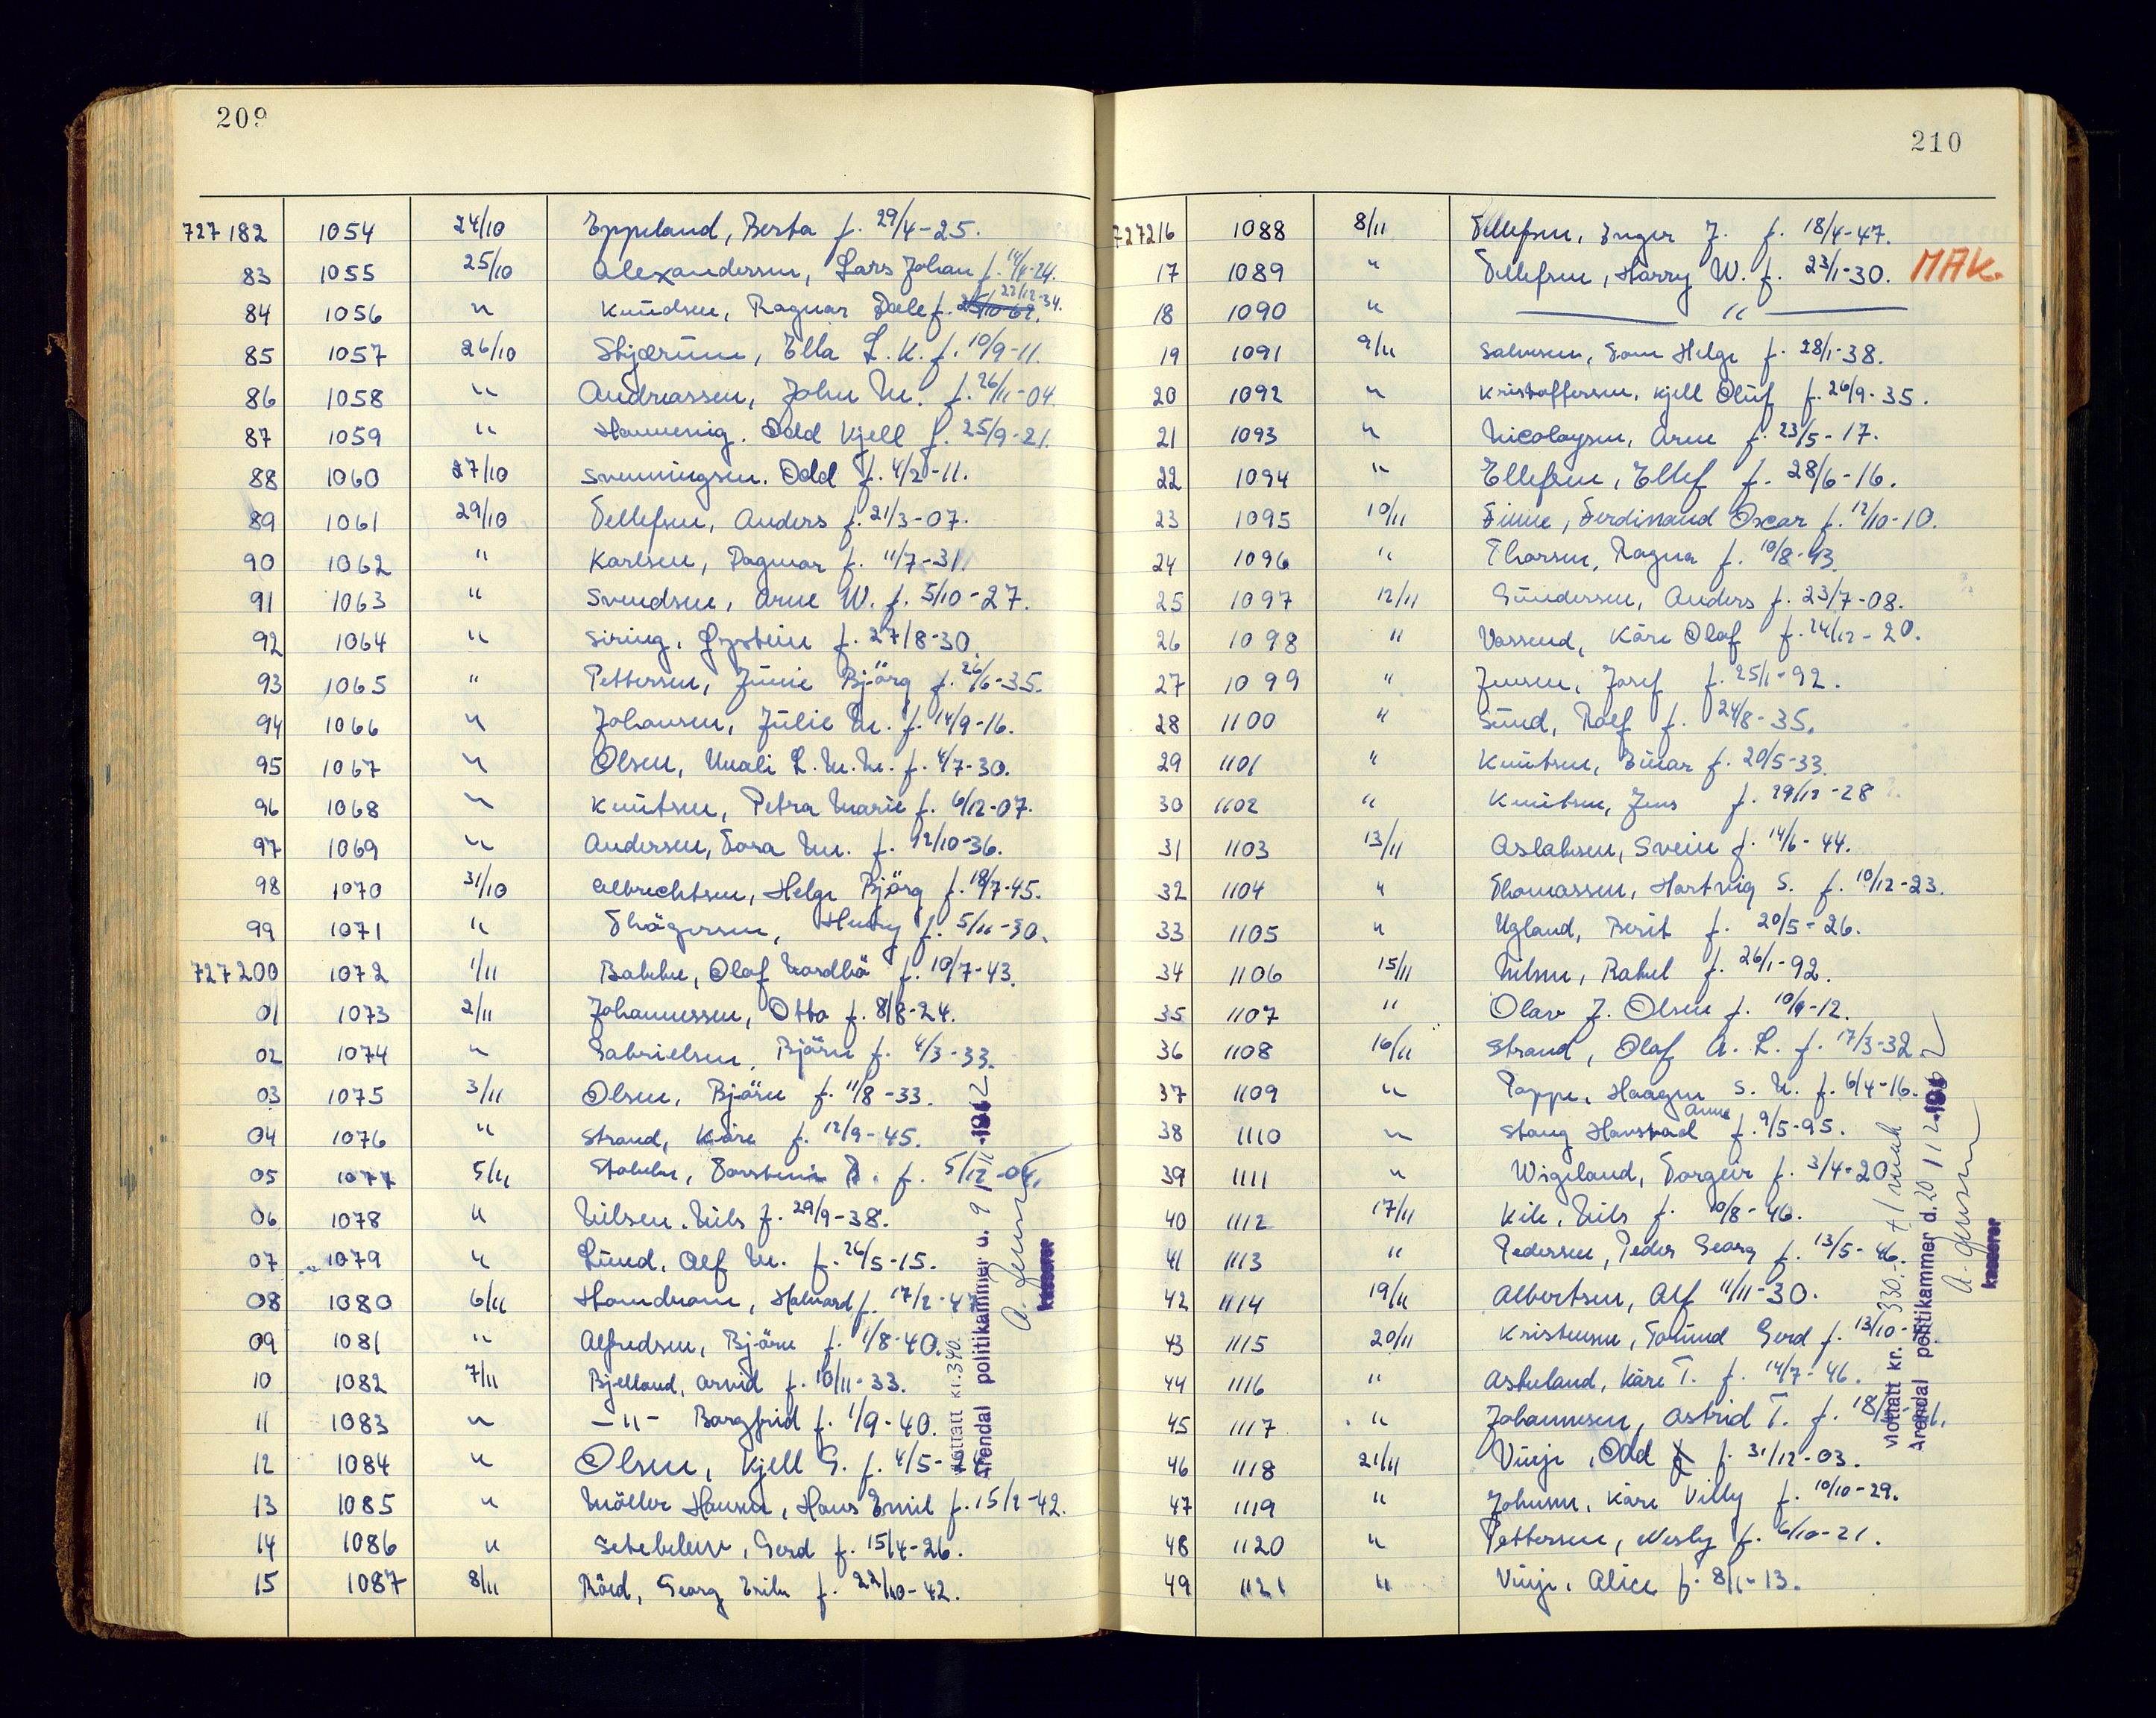 209
727182 1054 24/10 Eppeland, Berta f. 29/4-25.
83 1055 25/10 Alexandersen, Lars Johan f. 14/4-24.
84 1056 " Knudsen, Ragnar Dale f. 22/12-34.
85 1057 26/10 Skjærum, Ella L. K. f. 10/9-11.
86 1058 " Andreassen, John M. f. 26/11-04.
87 1059 " Hammerig. Odd Kjell f. 25/9-21.
88 1060 27/10 Svenningsen. Odd f. 4/2-11.
89 1061 29/10 Tellefsen, Anders f. 21/3-07.
90 1062 " Karlsen, Dagmar f. 11/7-31.
91 1063 " Svendsen, Arne W. f. 5/10-27.
92 1064 " Siring, Øystein f. 27/8-30.
93 1065 " Pettersen, Junie Björg f. 26/6-35.
94 1066 " Johansen, Julie M. f. 14/9-16.
95 1067 " Olsen, Unali L. M. M. f. 4/7-30.
96 1068 " Knutsen, Petra Marie f. 6/12-07.
97 1069 " Andersen, Tora M. f. 12/10-36.
98 1070 31/10 Albrechtsen, Helge Björg f. 18/7-45.
99 1071 " Thögersen, Henry f. 5/11-30.
727200 1072 1/11 Bakke, Olaf Nordbö f. 10/7-43.
01 1073 2/11 Johannessen, Otto f. 8/8-24.
02 1074 " Gabrielsen, Björn f. 4/3-33.
03 1075 3/11 Olsen, Björn f. 11/8-33.
04 1076 " Strand, Kåre f. 12/9-45.
05 1077 5/11 Stokken, Torstein f. 5/12-04.
06 1078 " Nilsen. Nils f. 29/9-38.
07 1079 " Lund, Alf M. f. 26/5-15.
08 1080 6/11 Homdrom, Halvard f. 17/2-47
09 1081 " Alfredsen, Björn f. 1/8-40.
10 1082 7/11 Bjelland, Arvid f. 10/11-33.
11 1083 " -"- Borgfrid f. 1/9-40.
12 1084 " Olsen, Kjell G. f. 4/5-
13 1085 " Möller Hansen, Hans Emil f. 15/2-42.
14 1086 " Setekleiv, Gerd f. 15/4-26.
15 1087 8/11 Röed, Georg f. 22/10-42.
Mottatt kr. 340.
Arendal politikammer d. 9/11 1962
A. Jensen
kasserer
210
727216 1088 8/11 Tellefsen, Inger J. f. 18/4-47.
17 1089 " Tellefsen, Harry W. f. 23/1-30. MAK.
18 1090 " — " —
19 1091 9/11 Salvesen, Tom Helge f. 28/1-38.
20 1092 " Kristoffersen, Kjell Oluf f. 26/9-35.
21 1093 " Nicolaysen, Arne f. 23/5-17.
22 1094 " Ellefsen, Ellef f. 28/6-16.
23 1095 10/11 Finne, Ferdinand Oscar f. 12/10-10.
24 1096 " Thorsen, Ragna f. 10/8-43.
25 1097 12/11 Gundersen, Anders f. 23/7-08.
26 1098 " Vassend, Kåre Olaf f. 24/12-20.
27 1099 " Jensen, Josef f. 25/1-92.
28 1100 " Sund, Rolf f. 24/8-35.
29 1101 " Knutsen, Einar f. 20/5-33.
30 1102 " Knutsen, Jens f. 29/12-28
31 1103 13/11 Aslaksen, Svein f. 14/6-44.
32 1104 " Thomassen, Hartvig S. f. 10/12-23.
33 1105 " Ugland, Berit f. 20/5-26.
34 1106 15/11 Nilsen, Rakel f. 26/1-92.
35 1107 " Olav J. Olsen f. 10/9-12.
36 1108 16/11 Strand, Olaf A. L. f. 17/3-32.
37 1109 " Poppe, Haagen S. N. f. 6/4-16.
38 1110 " Stang Hanstad Anne f. 9/5-95.
39 1111 " Wigeland, Torgeir f. 3/4-20
40 1112 17/11 Kile, Nils f. 10/8-46.
41 1113 " Pedersen, Peder Georg f. 13/5-46.
42 1114 19/11 Albertsen, Alf 11/11-30.
43 1115 20/11 Kristensen, Tomund Gerd f. 13/10-
44 1116 " Askeland, Kåre T. f. 14/7-46.
45 1117 " Johannesen, Astrid T. f. 18/
46 1118 21/11 Vinje, Odd f. 31/12-03.
47 1119 " Johnsen, Kåre Villy f. 10/10-29.
48 1120 " Pettersen, Wesly f. 6/10-21.
49 1121 " Vinje, Alice f. 8/1-13.
Mottatt kr. 330.-
Arendal politikammer d. 20/11 1962
A. Jensen
kasserer